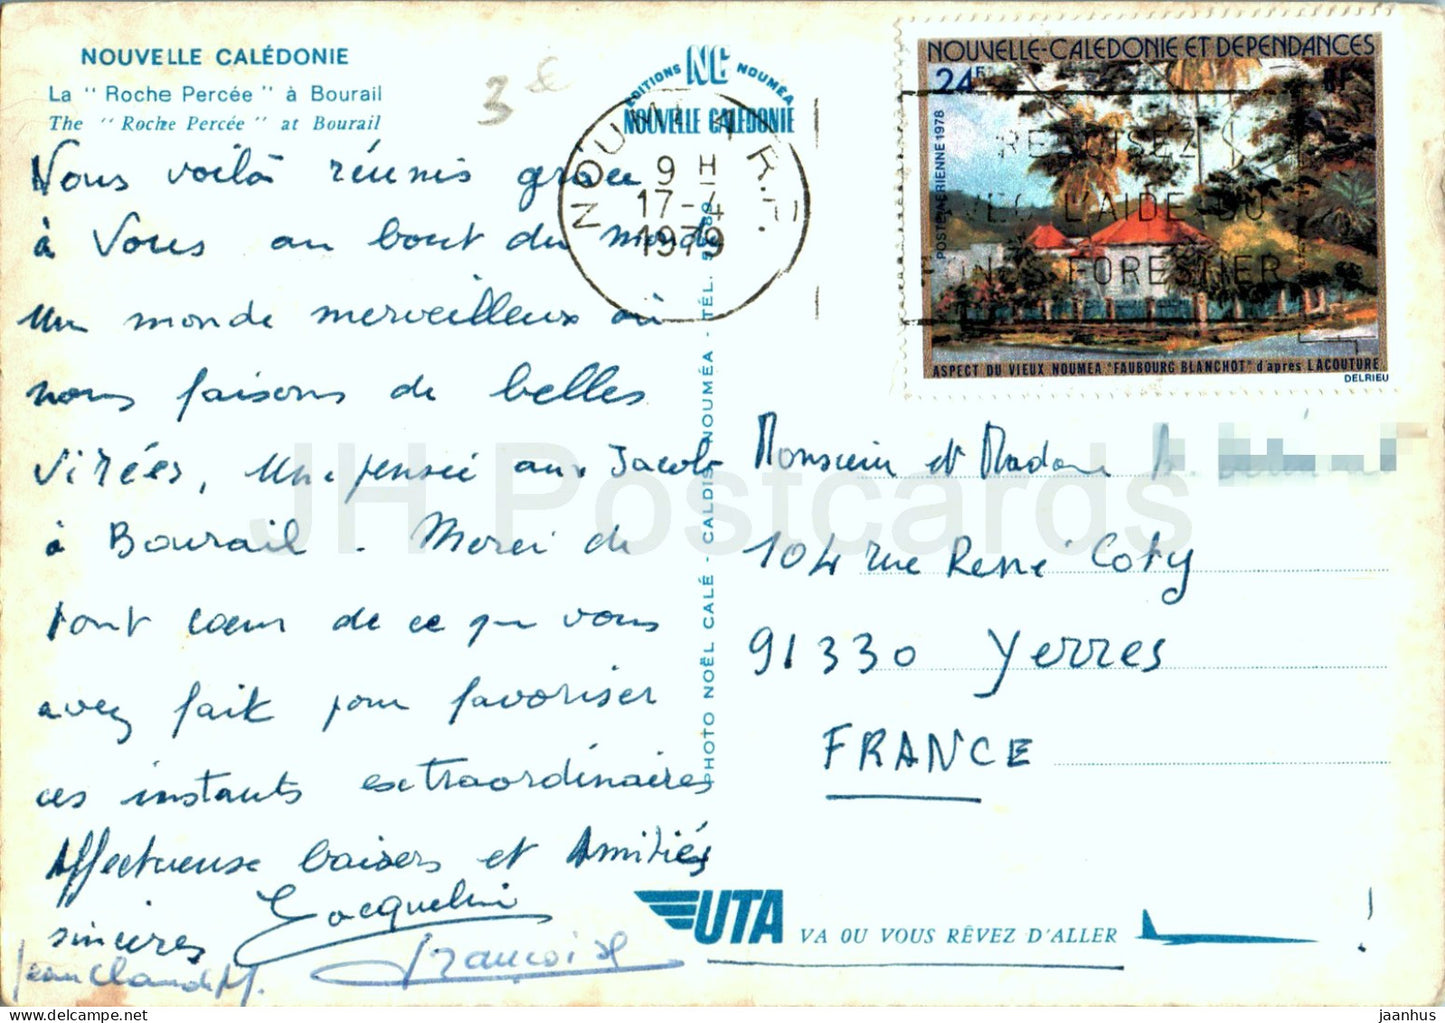 NOUVELLE CALÉDONIE
La "Roche Percée" à Bourail
The "Roche Percée" at Bourail
3€
Nous voilà réunis grace
à Vous au bout du monde
Un monde merveilleux où
nous faisons de belles
virées, Une pensée aux Jacob
à Bourail. Merci de
tout cœur de ce que vous
avez fait pour favoriser
ces instants extraordinaires
Affectueuse baisers et Amitiés
sincères Jacqueline
Jean Claude M. Francoise
EDITIONS NC NOUMÉA
NOUVELLE CALÉDONIE
NOUMEA R.P.
9 H
17-4
1979
PHOTO NOËL CALÉ - CALDIS NOUMÉA - TÉL.
NOUVELLE-CALEDONIE ET DEPENDANCES
24F RF
POSTE AERIENNE 1978
L'AIDE DU
FORESTIER
ASPECT DU VIEUX NOUMEA "FAUBOURG BLANCHOT" d'après LACOUTURE
DELRIEU
Monsieur et Madame
104 rue René Coty
91330 Yerres
FRANCE
UTA VA OU VOUS RÊVEZ D'ALLER !
JH Postcards
jaanhus